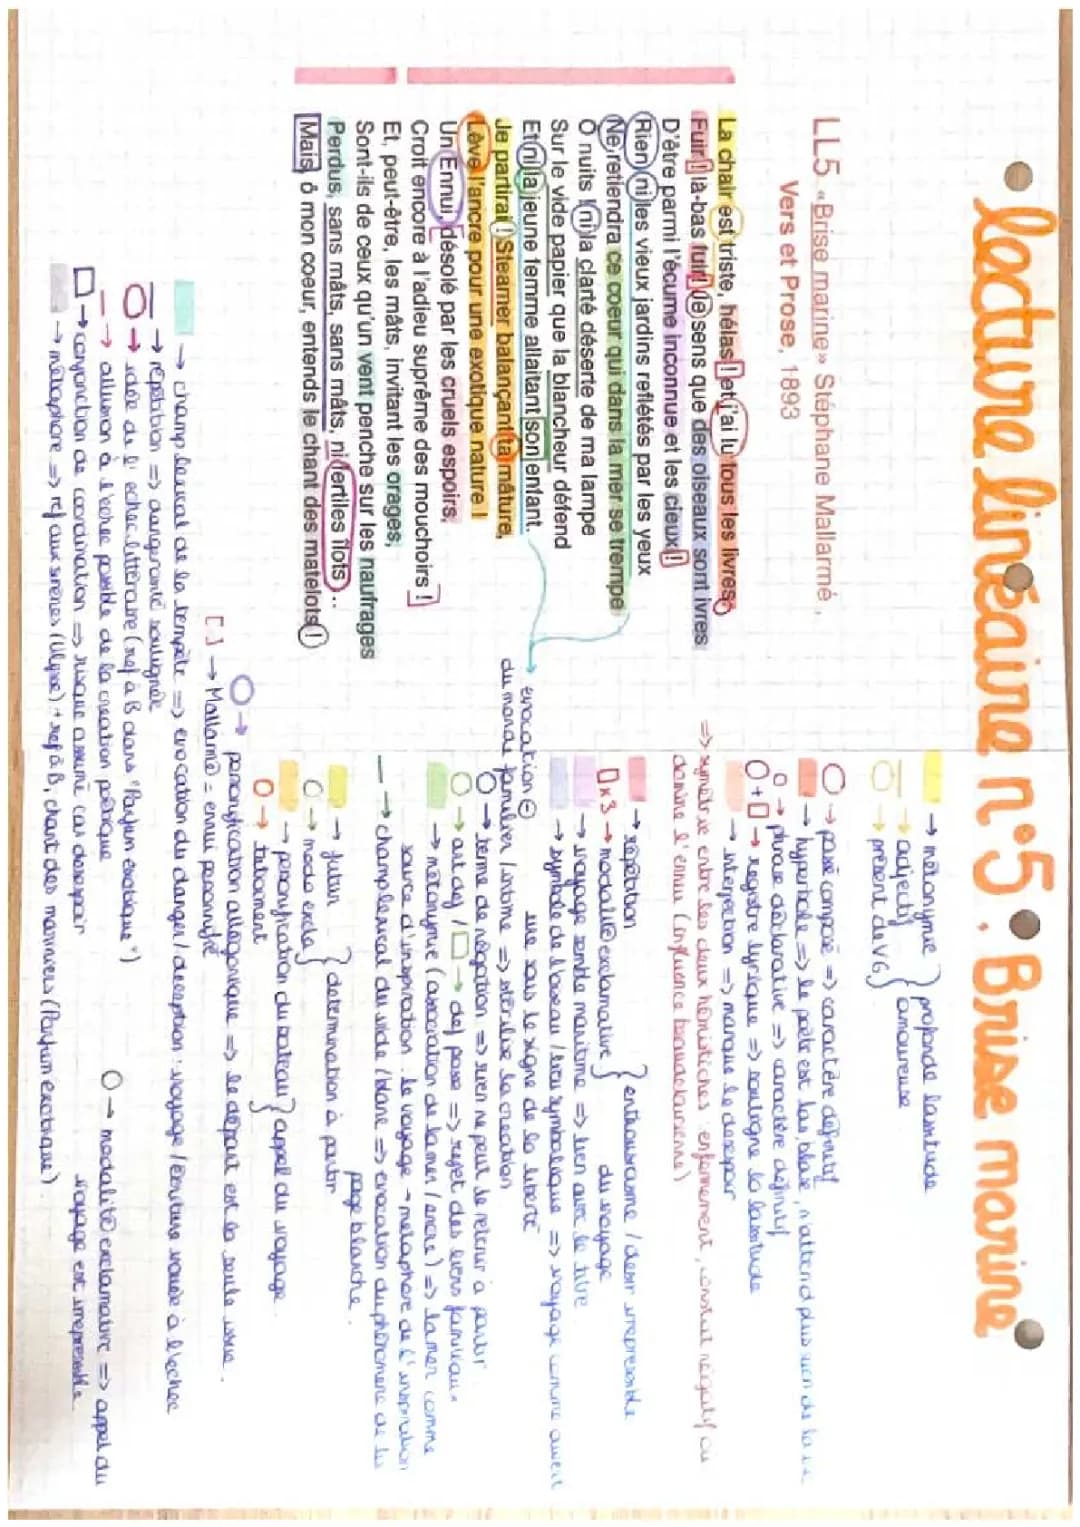 • lecture linéaire n°5 • Brise marine
LL5 «Brise marine» Stéphane Mallarmé,
Vers et Prose, 1893
La chair est triste, hélas ! et j'ai lu tous les livres.
Fuir ! là-bas fuir! Je sens que des oiseaux sont ivres
D'être parmi l'écume inconnue et les cieux !
Rien, ni les vieux jardins reflétés par les yeux
Ne retiendra ce coeur qui dans la mer se trempe
Ô nuits ! ni la clarté déserte de ma lampe
Sur le vide papier que la blancheur défend
Et ni la jeune femme allaitant son enfant.
Je partirai ! Steamer balançant ta mâture,
Lève l'ancre pour une exotique nature !
Un Ennui, désolé par les cruels espoirs,
Croit encore à l'adieu suprême des mouchoirs !
Et, peut-être, les mâts, invitant les orages,
Sont-ils de ceux qu'un vent penche sur les naufrages
Perdus, sans mâts, sans mâts, ni fertiles îlots ...
Mais, ô mon coeur, entends le chant des matelots !
→ métonymie } profonde lassitude
→ adjectif } amoureuse
→ présent de VG
→ passé composé => caractère définitif
→ hyperbole => le poète est las, blasé, n'attend plus rien de la vie
→ phrase déclarative => caractère définitif
+ → registre lyrique => souligne la lassitude
→ interjection => marque le désespoir
=> symétrie entre les deux hémistiches : enfermement, constat négatif où
domine l'ennui (influence baudelairienne)
→ répétition } enthousiasme / désir irrépressible
x3 → modalité exclamative } du voyage
→ voyage semble maritime => lien avec le titre
→ symbole de l'oiseau / lieu symbolique => voyage comme ouvert
sous le signe de la liberté
→ évocation ⊖
du monde familier / intime => stérilise la création
→ terme de négation => rien ne peut le retenir à partir
→ art def / → def poss => rejet des liens familiaux
→ métonymie (association de la mer / ancre) => la mer comme
source d'inspiration : le voyage → métaphore de l'inspiration
→ champ lexical du vide / blanc => évocation du phénomène de la
page blanche.
→ futur } détermination à partir
→ mode exclam }
→ personnification du bateau } appel du voyage.
→ tutoiement }
→ personnification allégorique => le départ est la seule issue.
[..] → Mallarmé = ennui personnifié
→ champ lexical de la tempête => évocation du danger / déception : voyage / écriture vouée à l'échec
→ répétition => dangerosité soulignée
→ idée de l'échec littéraire (ref à B dans "Parfum exotique")
→ allusion à l'échec possible de la création poétique
→ conjonction de coordination => risque assumé car désespoir
→ métaphore => ref aux sirènes (Ulysse) + ref à B, chant des mariniers (Parfum exotique).
→ modalité exclamative => appel du
voyage est irrépressible